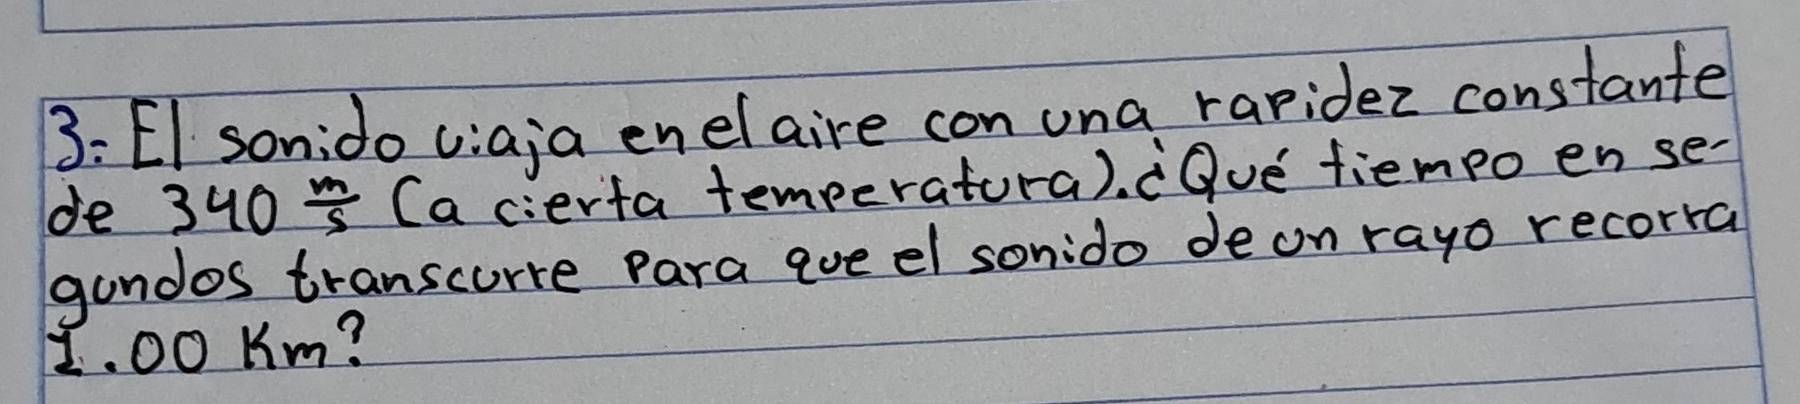 3.- El sonido viaja en el aire con una rapidez constante
de 340 m/s (a cierta temperatura). ¿Qué tiempo en se-
gundos transcurre para que el sonido de un rayo recorra
1.00 Km?